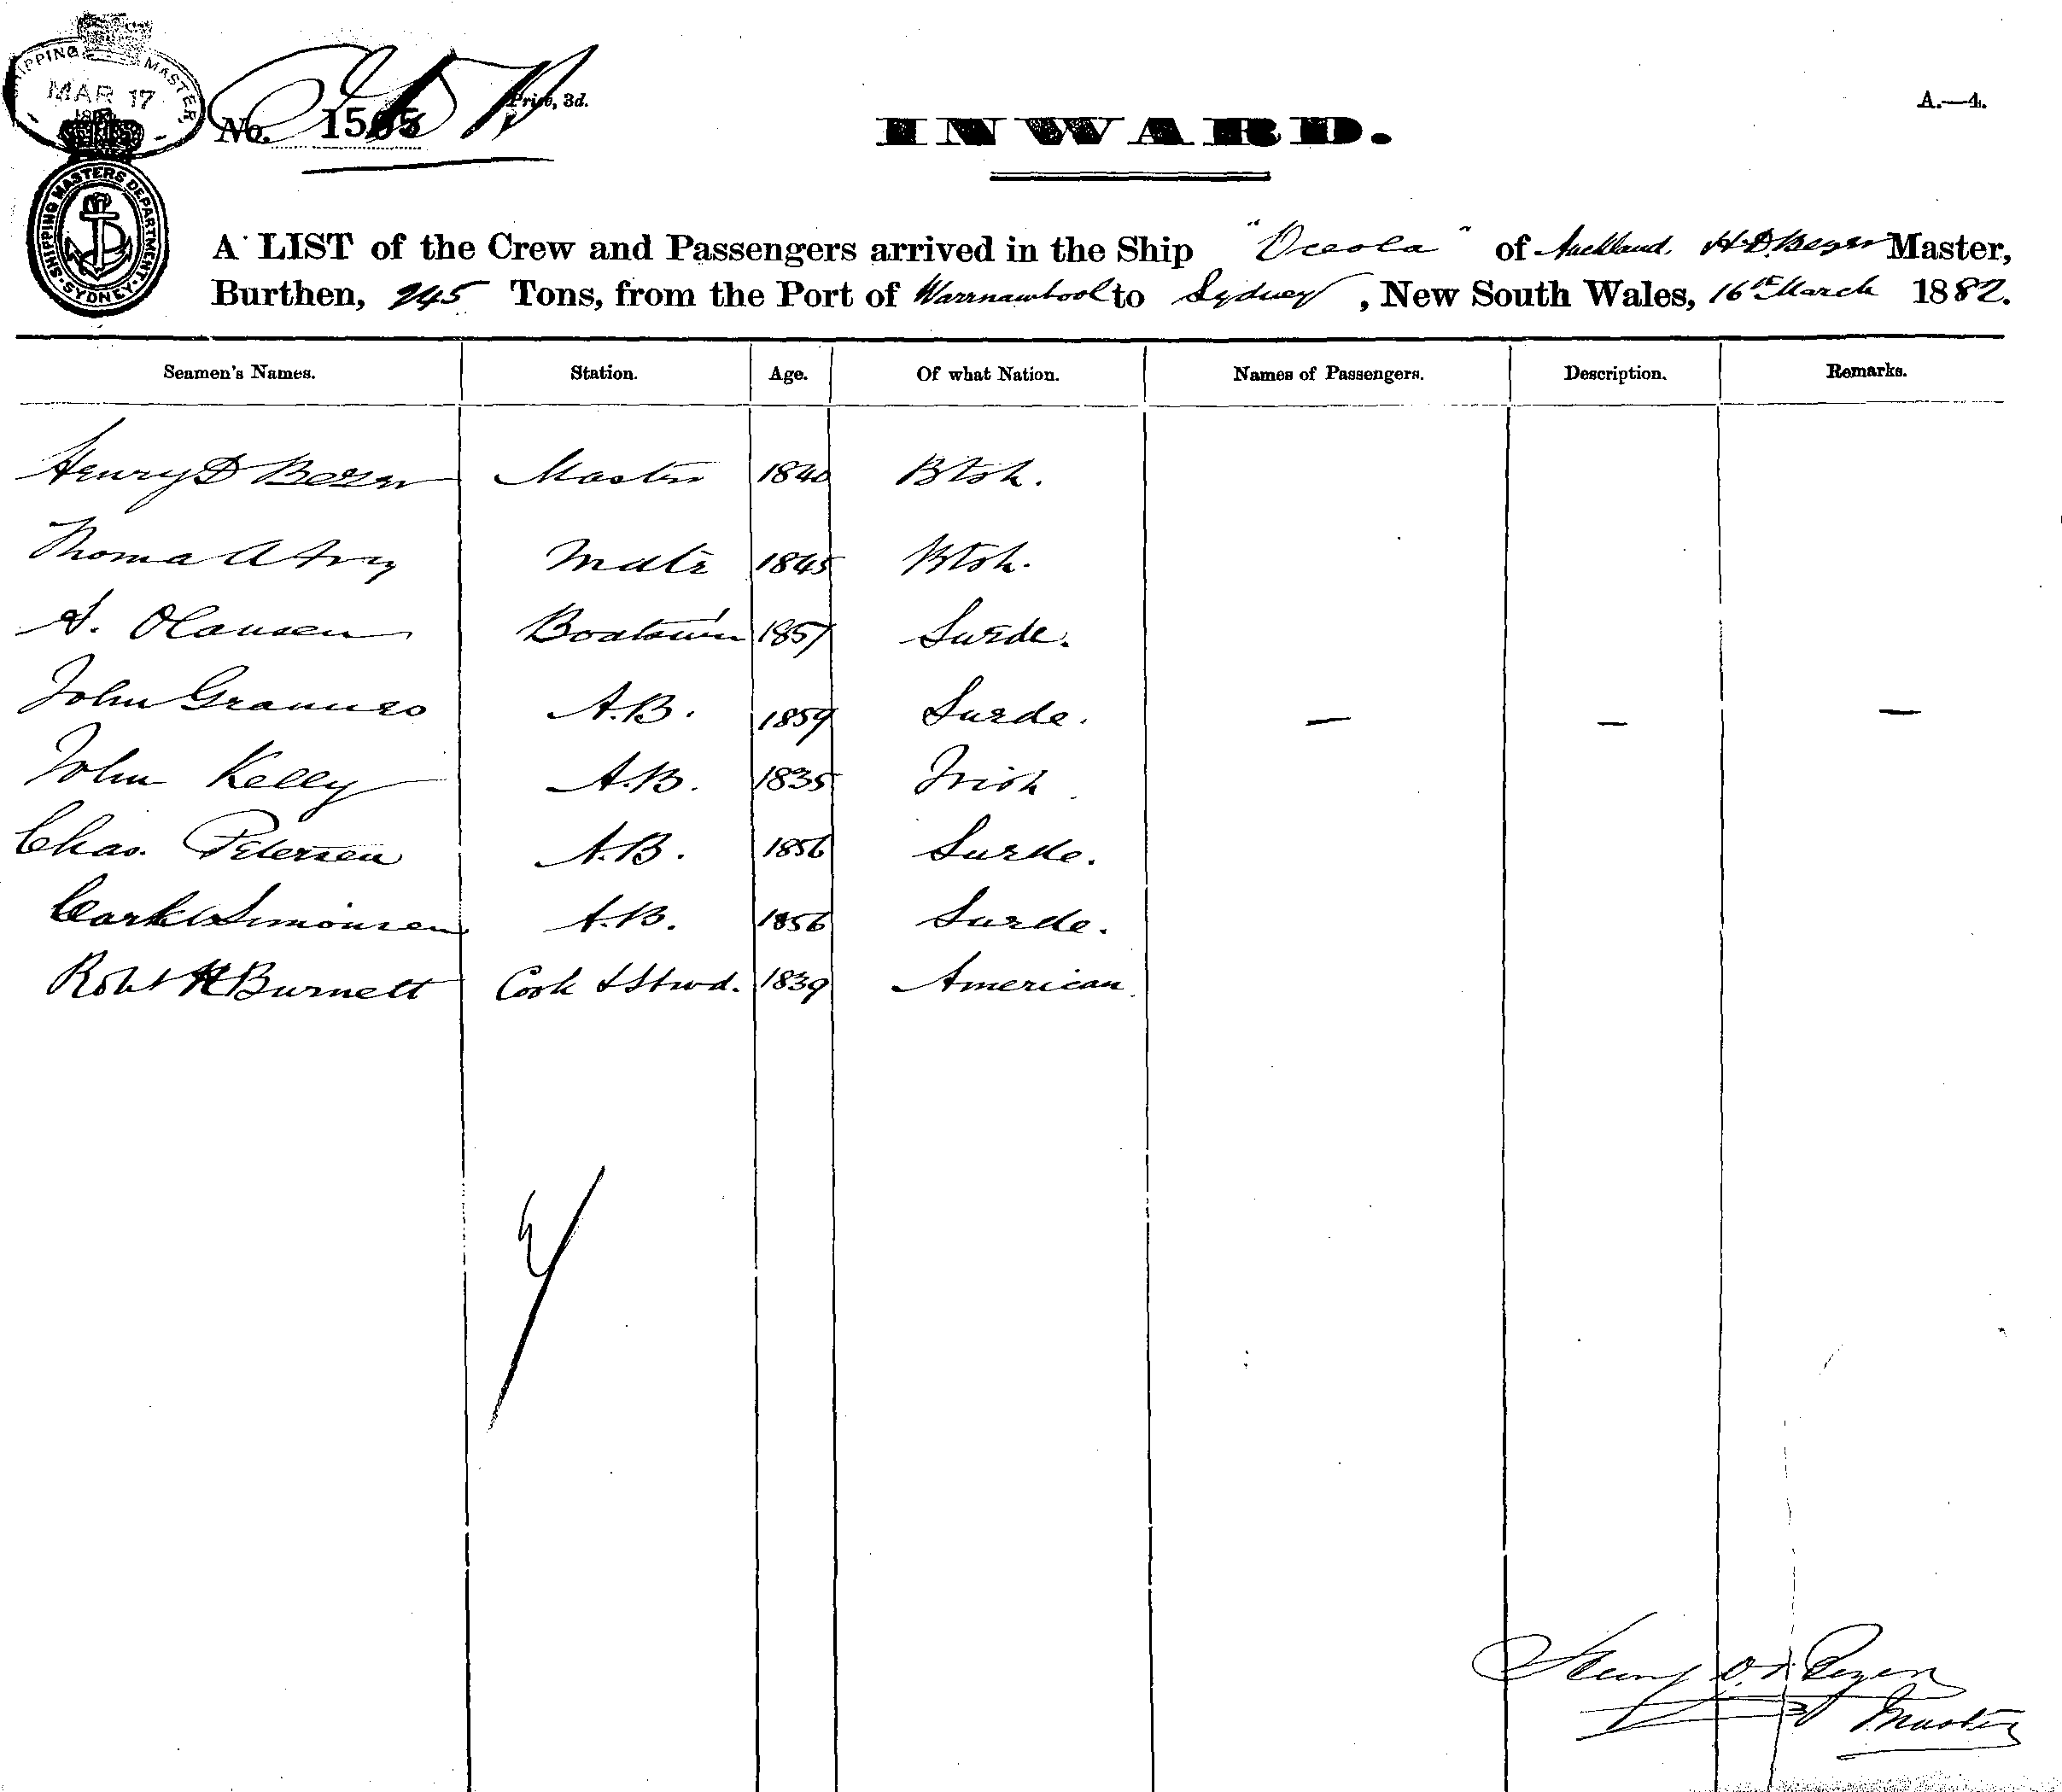 SHIPPING MASTER
MAR 17
No. 1565 Price, 3d.
INWARD.
A.—4.
SHIPPING MASTERS DEPARTMENT
SYDNEY
A LIST of the Crew and Passengers arrived in the Ship "Oceola" of Auckland. H.D. Bezer Master,
Burthen, 245 Tons, from the Port of Warrnambool to Sydney, New South Wales, 16th March 1882.
Seamen's Names. Station. Age. Of what Nation. Names of Passengers. Description. Remarks.
Henry D Bezer Master 1840 Btsh.
Thoma Mate 1845 Btsh.
Olausen Boatswin 1857 Swede.
John A.B. 1859 Swede. — — —
John Kelly A.B. 1835 Irish
Chas. Petersen A.B. 1856 Swede.
Simonsen A.B. 1856 Swede.
Robt H Burnett Cook & Stwd. 1839 American
Henry D. Bezer
Master